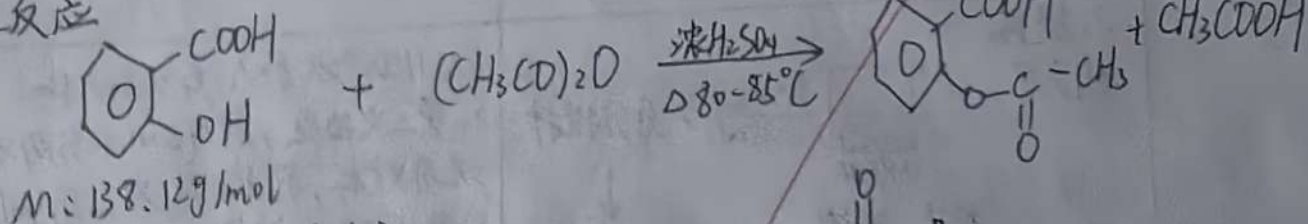 反应
COOH
OH
+ (CH3CO)2O 浓H2SO4 △80-85℃
COOH
O-C-CH3
O
+ CH3COOH
M: 138.12g/mol
O